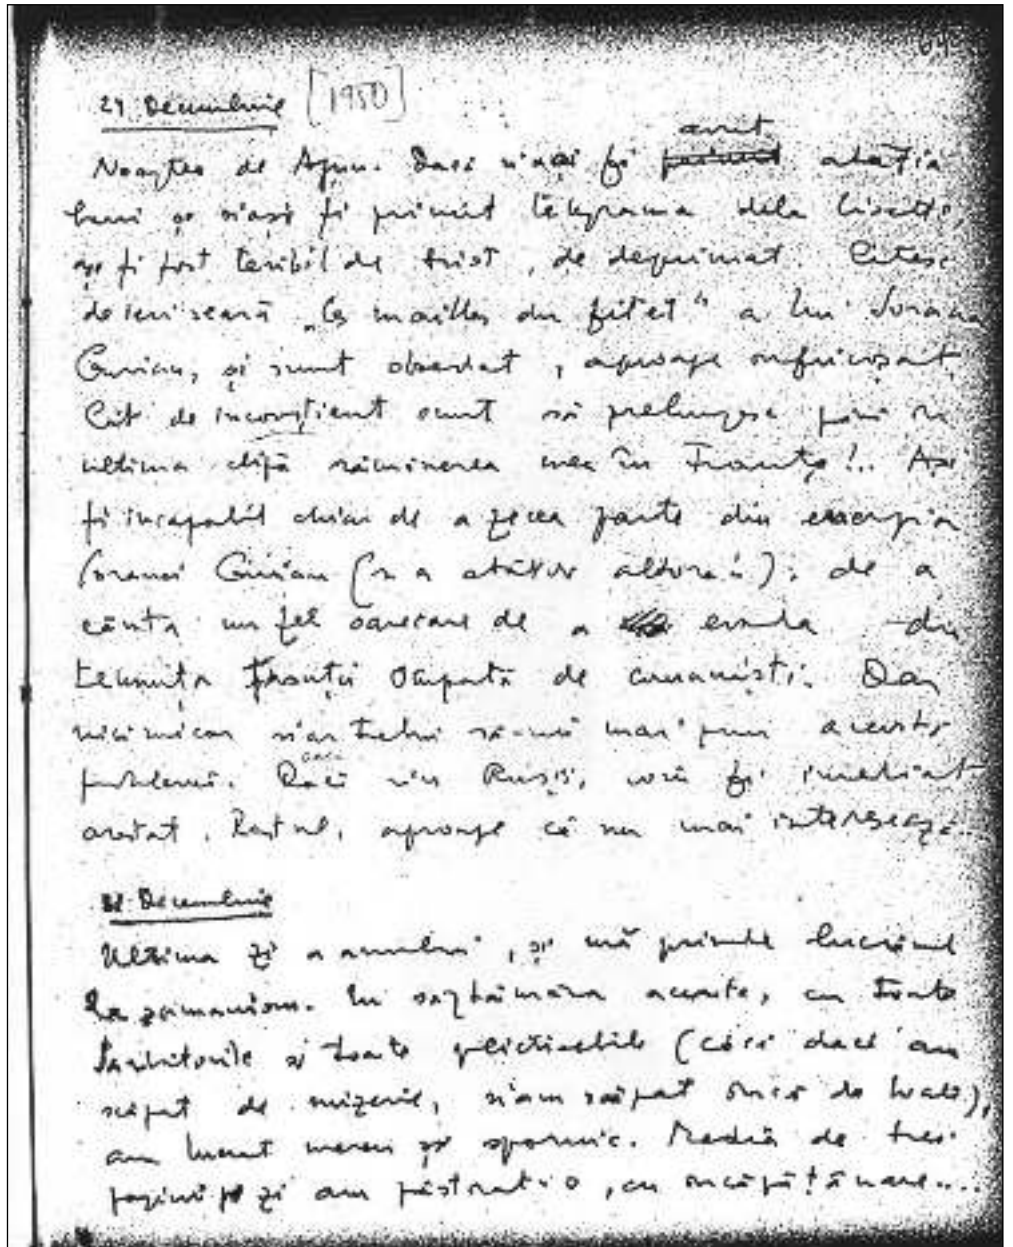 64
24 Decembrie [1950]
avut
Noaptea de Ajun. Dacă n'aș fi primit atâția
bani și n'aș fi primit telegrama dela Lisette,
aș fi fost teribil de trist, de deprimat. Citesc
de ieri seară „Les mailles du filet" a lui Sorana
Gurian, și sunt obsedat, aproape înfricoșat.
Cât de inconștient sunt să prelungesc până în
ultima clipă rămânerea mea în Franța!.. Aș
fi incapabil chiar de a zecea parte din energia
Soranei Gurian (și a atâtor altora!); de a
căuta un fel oarecare de a evada din
temnița Franței ocupată de comuniști. Dar
nici măcar n'ar trebui să-mi mai pun această
problemă. Dacă vin Rușii, voiu fi imediat
arestat. Restul, aproape că nu mai interesează..
31 Decembrie
Ultima zi a anului, și mă prinde lucrând
la șamanism. În săptămâna aceasta, cu toate
sărbătorile și toate plictiselile (căci dacă am
scăpat de mizerie, n'am scăpat încă de boală),
am lucrat mereu și spornic. Media de trei
pagini pe zi am păstrat-o, cu încăpățânare...